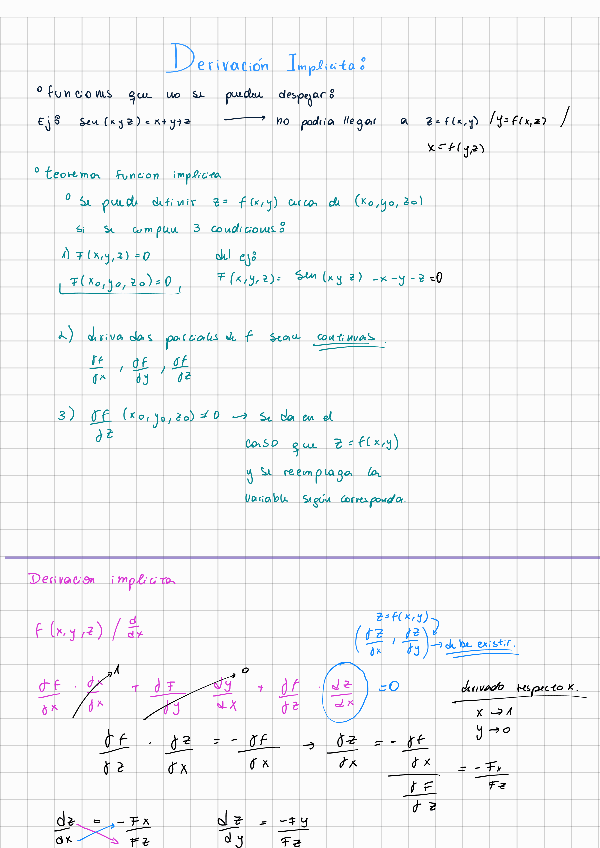 Derivación Implicita:
° funciones que no se pueden despejar:
Ej: sen(xyz)=x+y+z → no podria llegar a z=f(x,y) / y=f(x,z) /
x=f(y,z)
° teorema funcion implicita
° se puede definir z= f(x,y) cerca de (x₀,y₀,z₀)
si se cumplen 3 condiciones:
1) F(x,y,z)=0 del ej:
F(x₀,y₀,z₀)=0 F(x,y,z)= sen(xyz) -x-y-z=0
2) derivadas parciales de f sean continuas.
∂f/∂x , ∂f/∂y , ∂f/∂z
3) ∂f/∂z (x₀,y₀,z₀) ≠ 0 → se da en el
caso que z=f(x,y)
y se reemplaza la
variable según corresponda.
Derivacion implicita
z=f(x,y)
f(x,y,z) / d/dx
(∂z/∂x , ∂z/∂y) → debe existir.
∂f/∂x · dx/dx + ∂F/∂y · dy/dx + ∂f/∂z · ∂z/∂x =0
1 0
derivado respecto x.
x → 1
y → 0
∂f/∂z · ∂z/∂x = -∂f/∂x → ∂z/∂x = - ∂f/∂x / ∂F/∂z = -Fx/Fz
dz/dx = -Fx/Fz dz/dy = -Fy/Fz